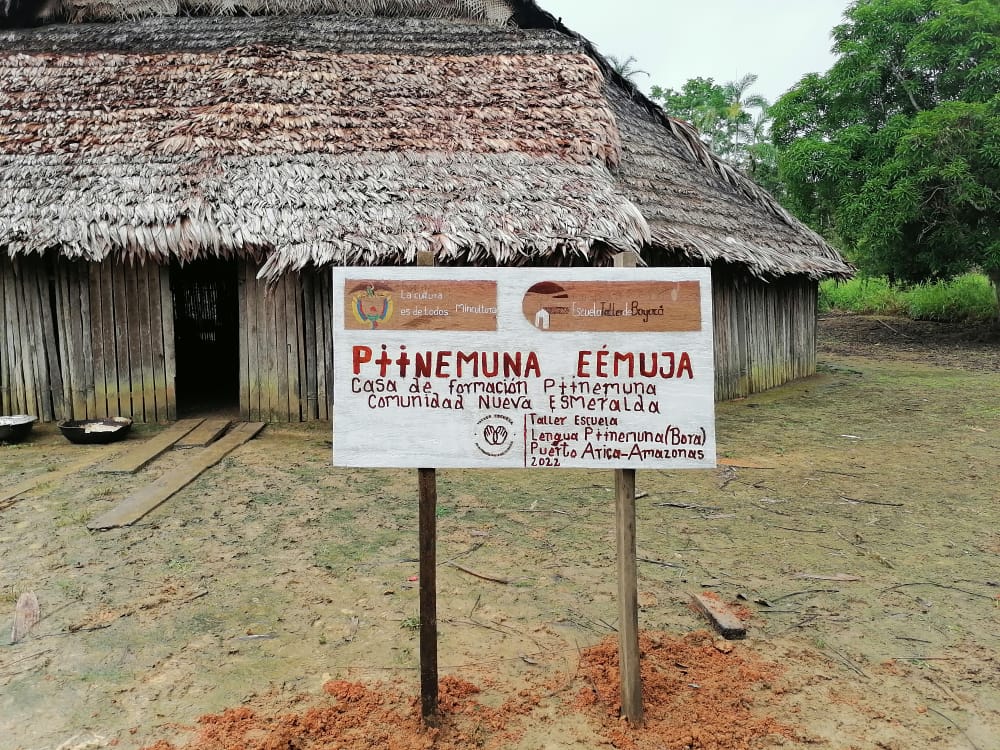 La cultura
es de todos
Mincultura
Escuela Taller de Bogotá
PɨɨNEMUNA EÉMUJA
Casa de formación Pɨɨnemuna
Comunidad Nueva Esmeralda
Taller Escuela
Lengua Pɨɨnemuna (Bora)
Puerto Arica-Amazonas
2022